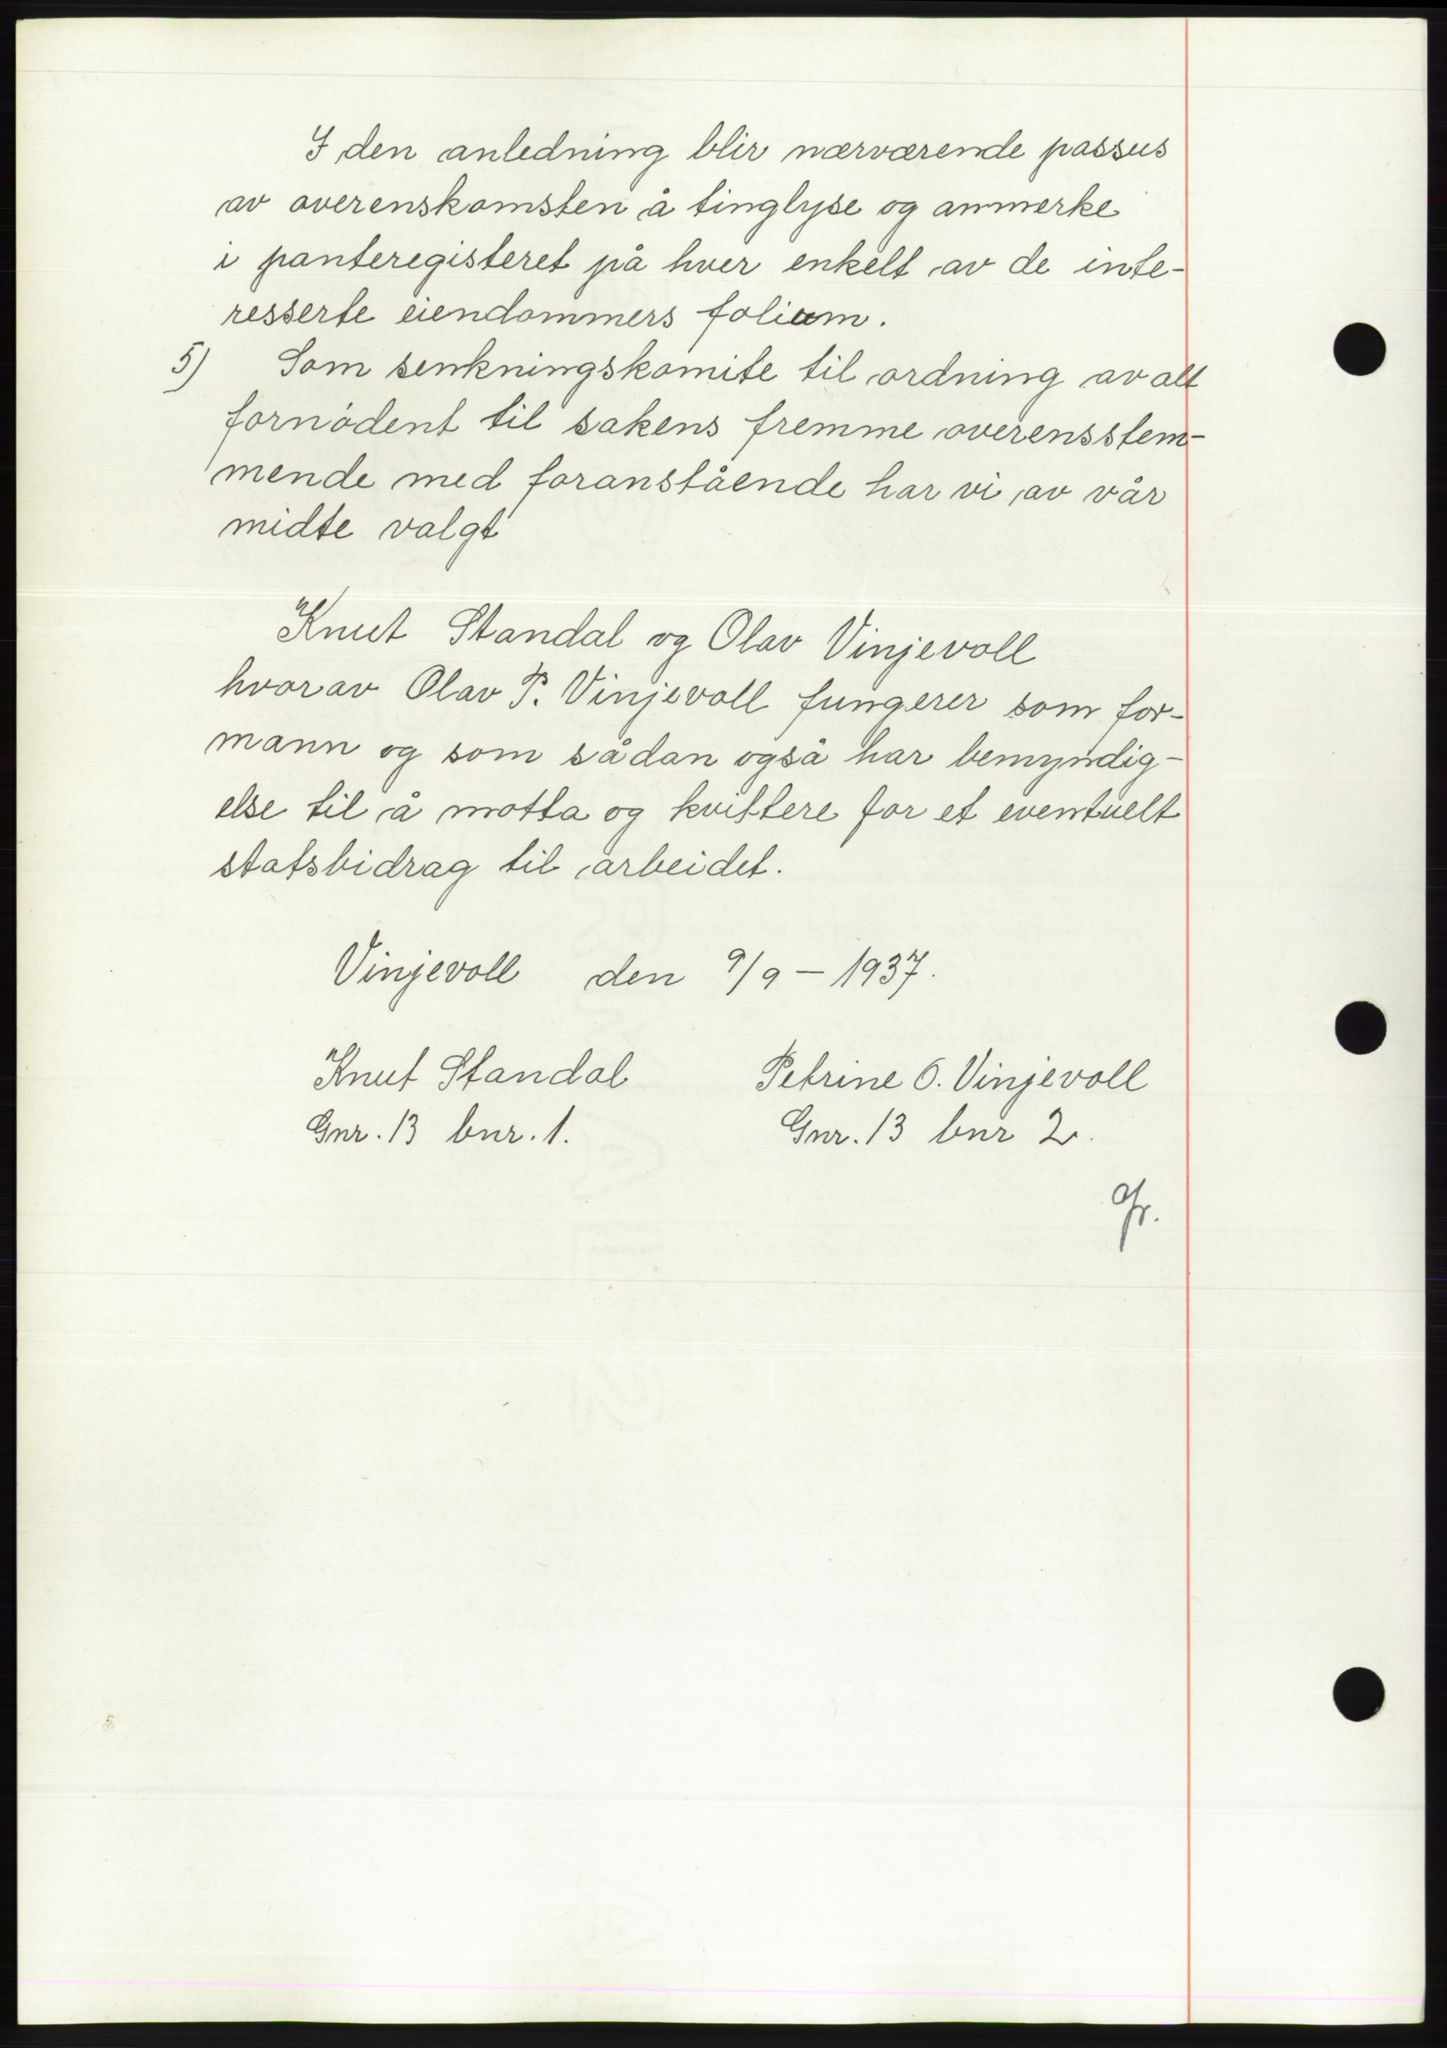 I den anledning blir nærværende passus
av overenskomsten å tinglyse og anmerke
i panteregisteret på hver enkelt av de inte-
resserte eiendommers folium.
5) Som senkningskomite til ordning av alt
fornødent til sakens fremme overensstem-
mende med foranstående har vi av vår
midte valgt
Knut Standal og Olav Vinjevoll
hvorav Olav P. Vinjevoll fungerer som for-
mann og som sådan også har bemyndig-
else til å motta og kvittere for et eventuelt
statsbidrag til arbeidet.
Vinjevoll den 9/9 - 1937.
Knut Standal Petrine O. Vinjevoll
Gnr. 13 bnr. 1. Gnr. 13 bnr 2.